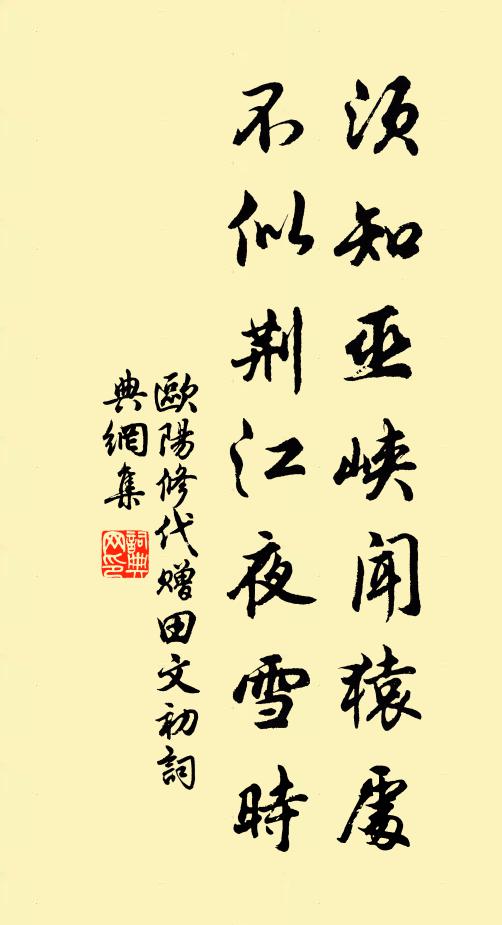 须知巫峡闻猿處
不似荆江夜雪時
歐陽修代赠田文初詞
典網集
詞典
网印